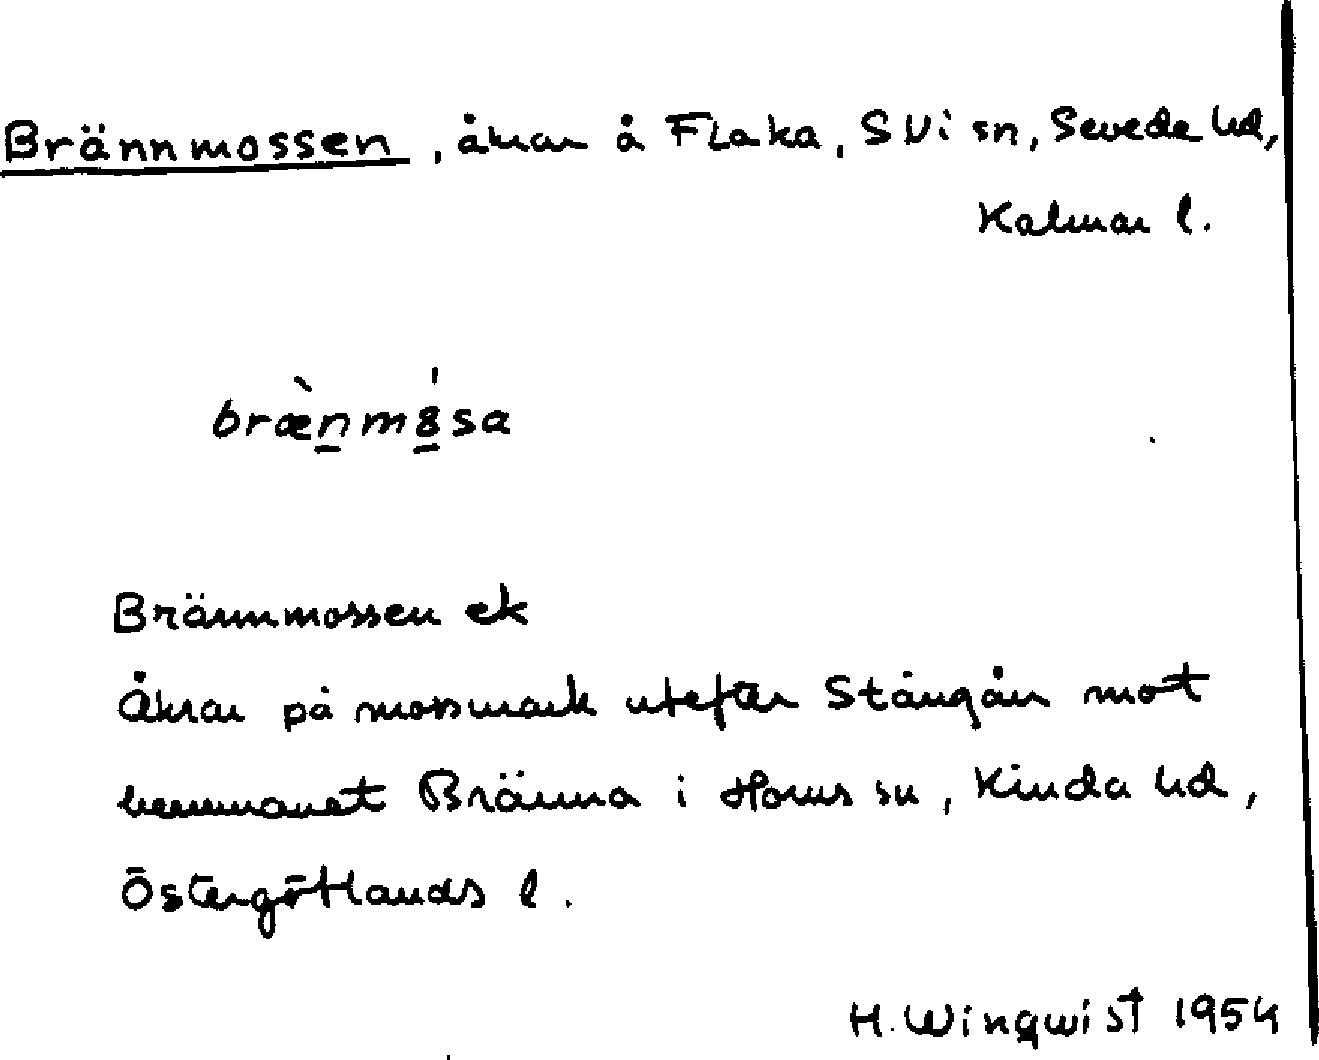 Brännmossen, åkrar å Flaka, S Vi sn, Sevede hd,
Kalmar l.
bræ̀n̲m8̲́sa
Brännmossen ek
Åkrar på mossmark utefter Stångån mot
hemmanet Bränna i Horns sn, Kinda hd,
Östergötlands l.
H. Winqwist 1954